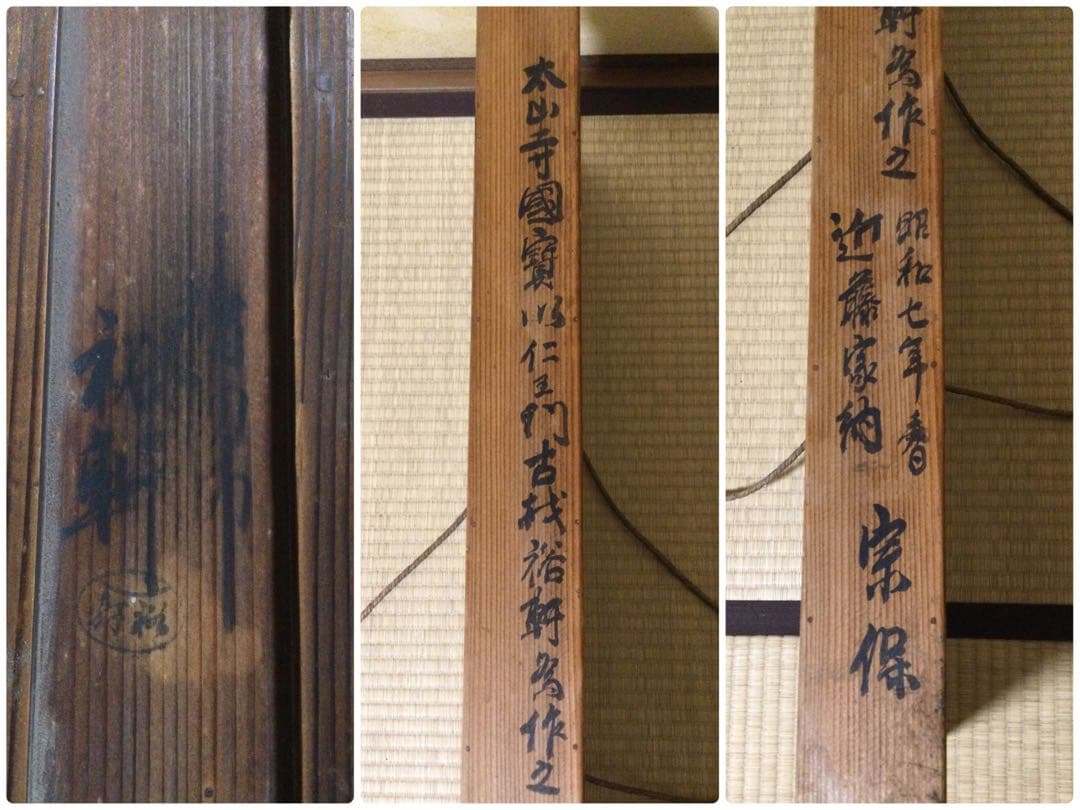 裕軒
太山寺國寳以仁王門古材裕軒為作之
軒為作之
昭和七年春
近藤家納
宗保